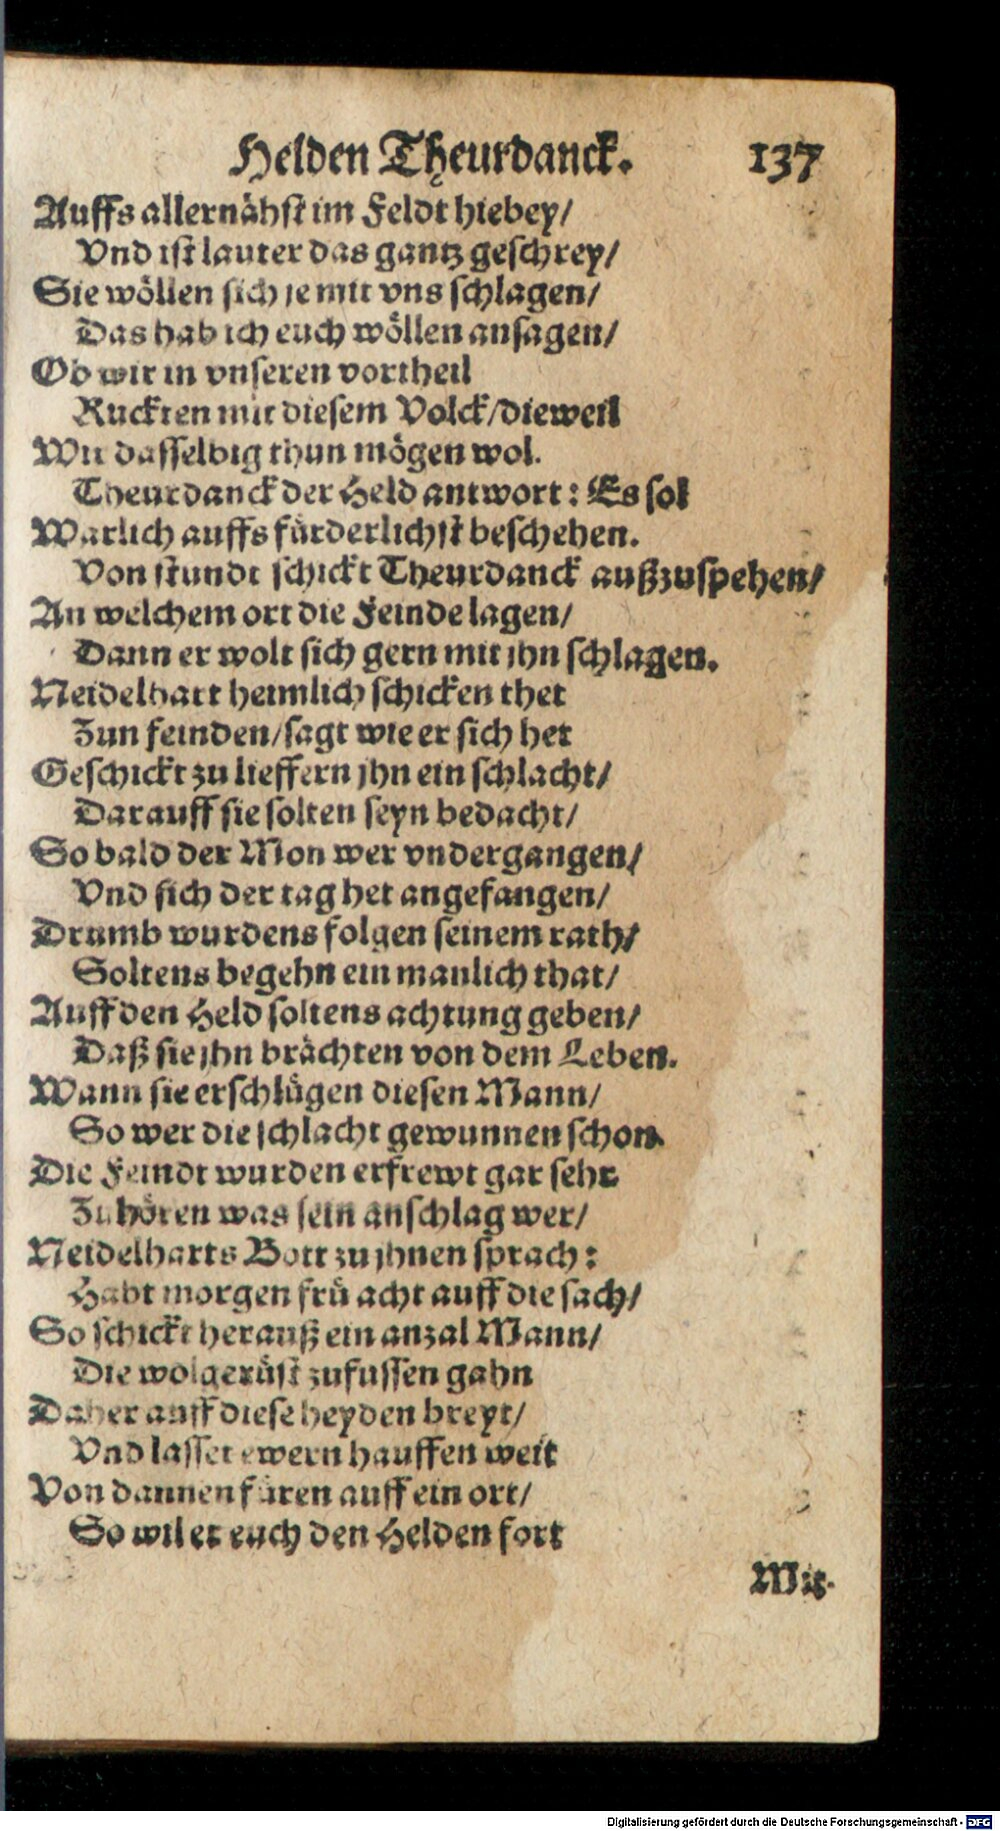 Helden Theurdanck. 137
Auffs allernähst im Feldt hiebey/
Vnd ist lauter das gantz geschrey/
Sie wöllen sich je mit vns schlagen/
Das hab ich euch wöllen ansagen/
Ob wir in vnseren vortheil
Ruckten mit diesem Volck/dieweil
Wir dasselbig thun mögen wol.
Theurdanck der Held antwort: Es sol
Warlich auffs fürderlichst beschehen.
Von stundt schickt Theurdanck außzuspehen/
An welchem ort die Feinde lagen/
Dann er wolt sich gern mit jhn schlagen.
Neidelhart heimlich schicken thet
Zun feinden/sagt wie er sich het
Geschickt zu lieffern jhn ein schlacht/
Darauff sie solten seyn bedacht/
So bald der Mon wer vndergangen/
Vnd sich der tag het angefangen/
Drumb wurdens folgen seinem rath/
Soltens begehn ein manlich that/
Auff den Held soltens achtung geben/
Daß sie jhn brächten von dem Leben.
Wann sie erschlügen diesen Mann/
So wer die schlacht gewunnen schon.
Die Feindt wurden erfrewt gar sehr
Zu hören was sein anschlag wer/
Neidelharts Bott zu jhnen sprach:
Habt morgen frü acht auff die sach/
So schickt herauß ein anzal Mann/
Die wolgerüst zufussen gahn
Daher auff diese heyden breyt/
Vnd lasset ewern hauffen weit
Von dannen füren auff ein ort/
So wil er euch den Helden fort
Mit
Digitalisierung gefördert durch die Deutsche Forschungsgemeinschaft - DFG